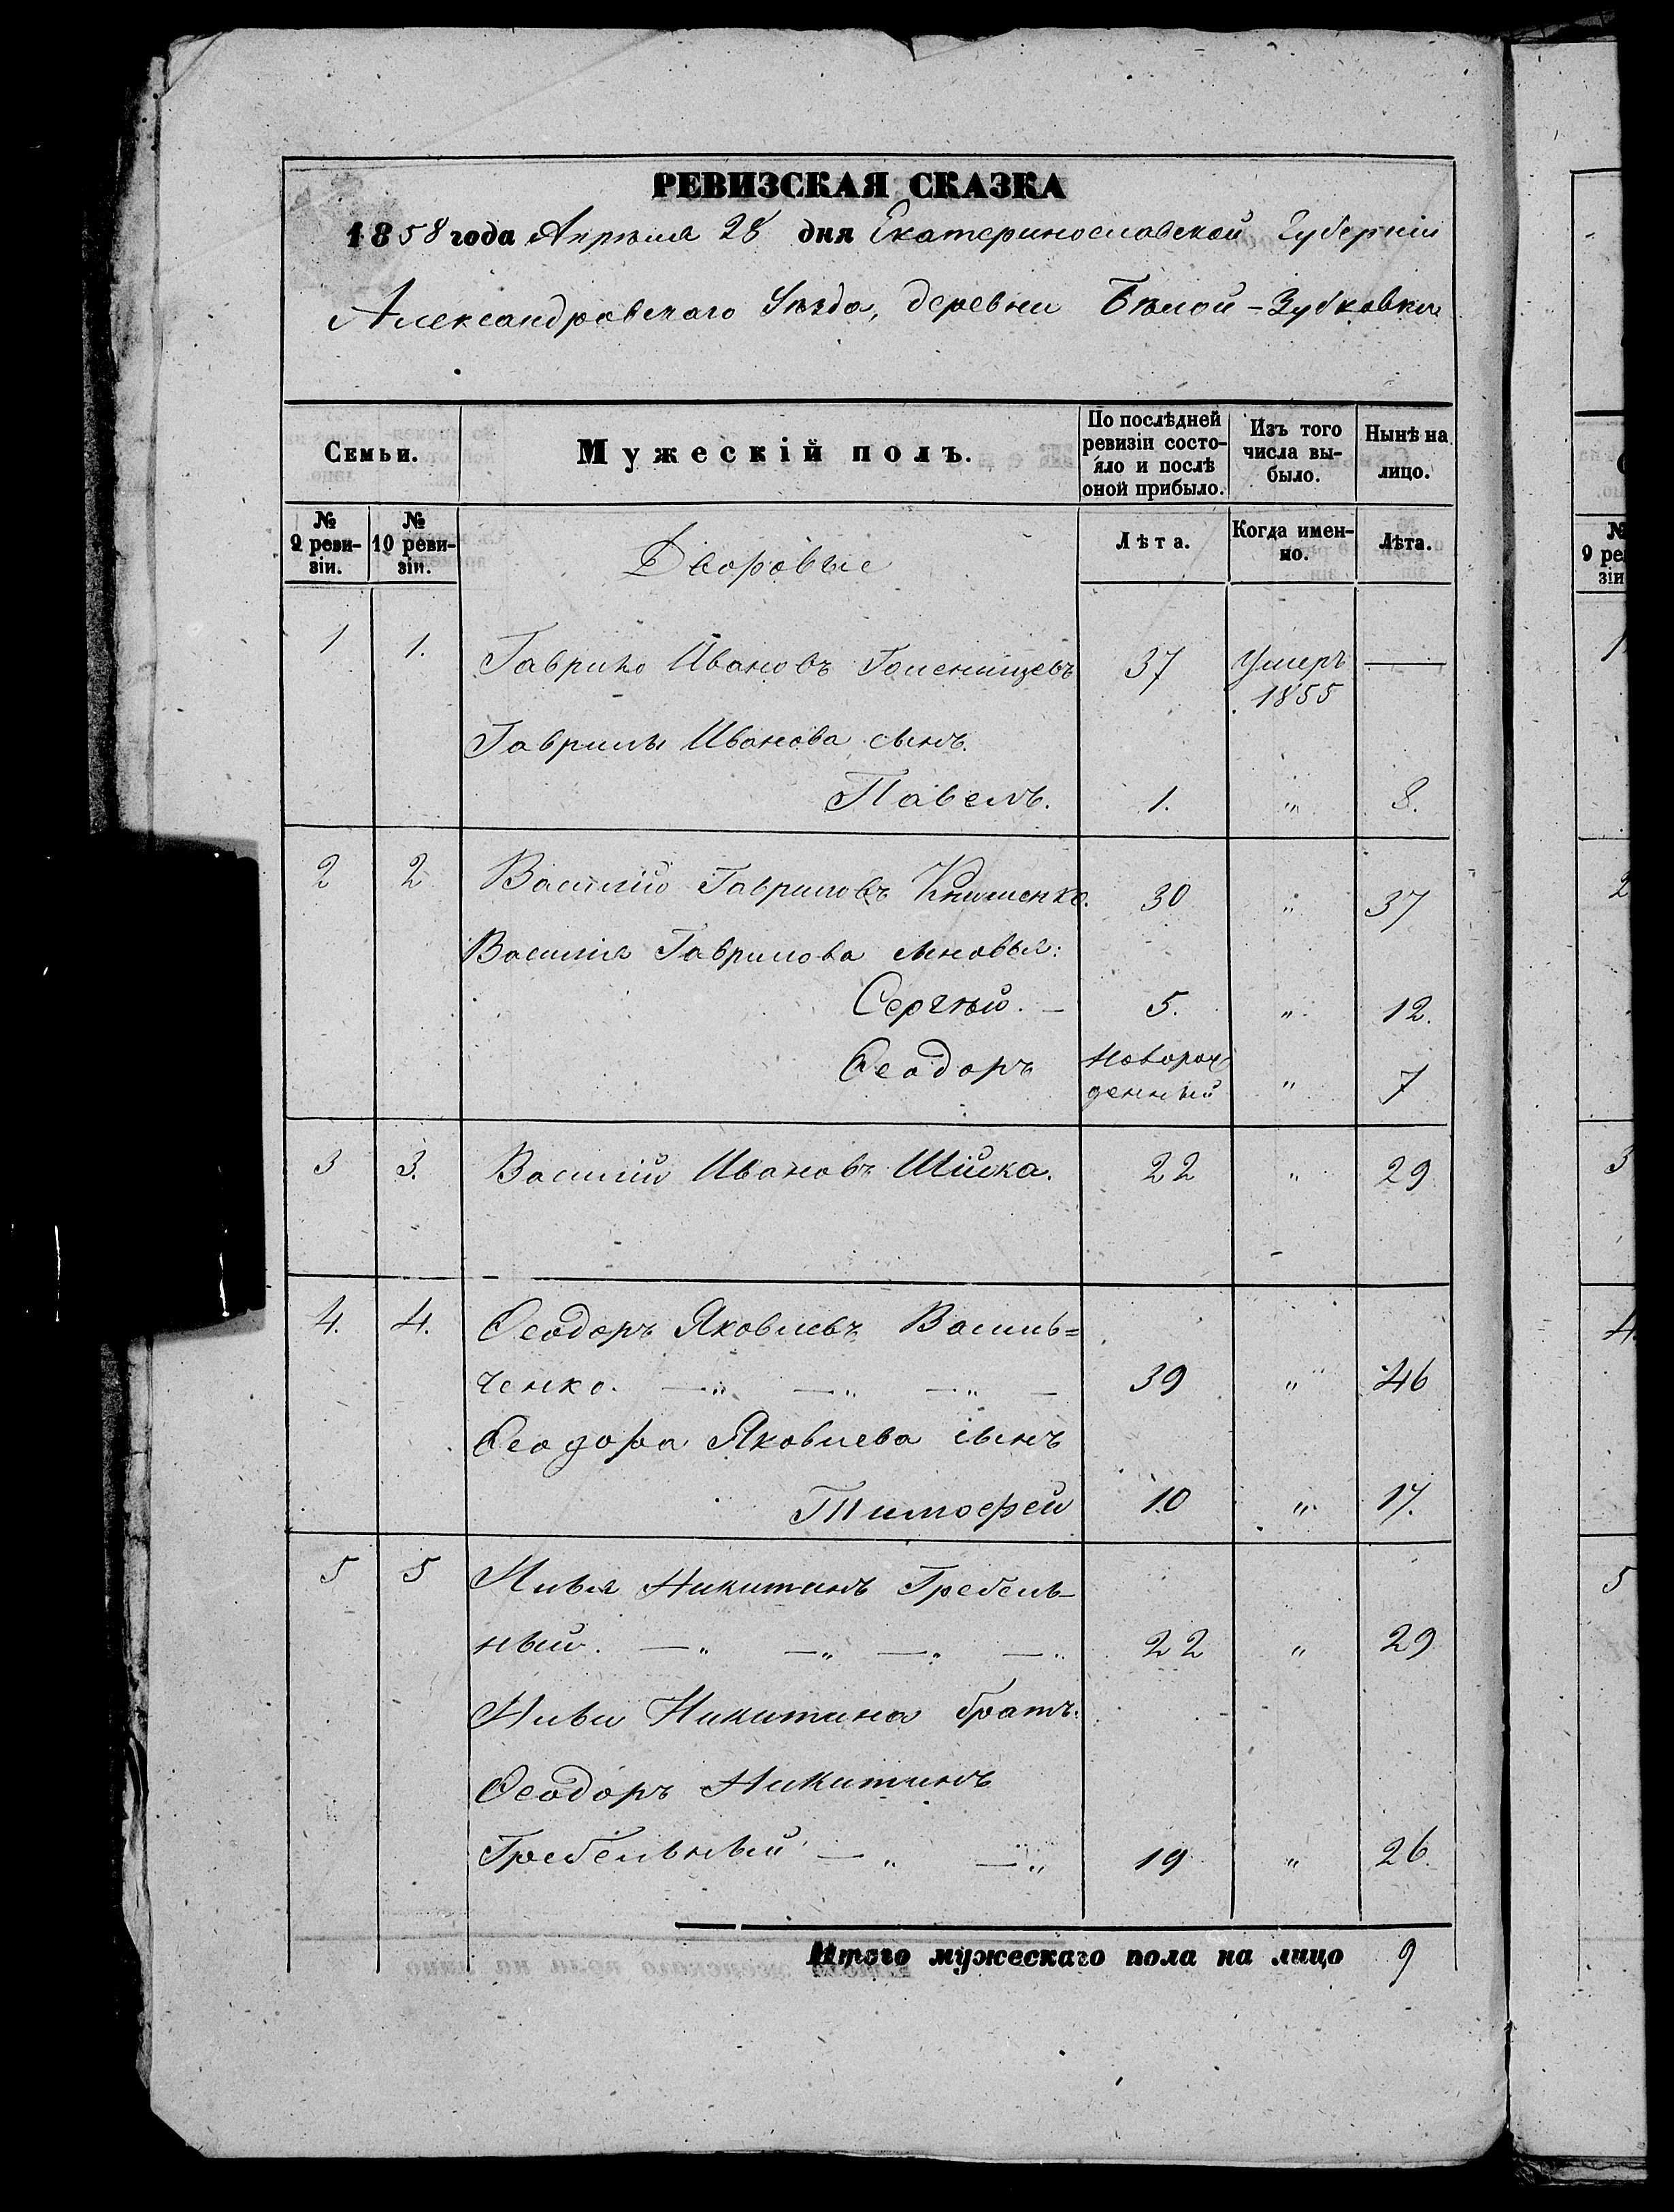 РЕВИЗСКАЯ СКАЗКА
1858 года Апрѣля 28 дня Екатеринославской Губерніи
Александровскаго Уѣзда, деревни Бѣлой-Зубковки
Семьи.
Мужескій полъ.
По послѣдней ревизіи состояло и послѣ оной прибыло.
Изъ того числа выбыло.
Нынѣ на лицо.
№ 9 ревизіи.
№ 10 ревизіи.
Дворовые
Лѣта.
Когда именно.
Лѣта.
1 1. Гаврило Ивановъ Голенищевъ 37 Умеръ 1855 —
Гаврилы Иванова сынъ.
Павелъ. 1. „ 8.
2 2 Василій Гавриловъ 30 „ 37
Василія Гаврилова сыновья:
Сергѣй. — 5. „ 12.
Ѳеодоръ Новорожденный „ 7
3 3. Василій Ивановъ Шійка. 22 „ 29
4. 4. Ѳеодоръ Яковлевъ Василь=
ченко. — „ — „ — „ — 39 „ 46
Ѳеодора Яковлева сынъ
Тимофей 10 „ 17.
5 5 Илья Никитинъ Гребель-
ный. — „ — „ — „ — „ 22 „ 29
Ильи Никитина братъ.
Ѳеодоръ Никитинъ
Гребельный — „ — „ 19 „ 26.
Итого мужескаго пола на лицо 9
№
9 ре
зіи
1
2
3
4
5